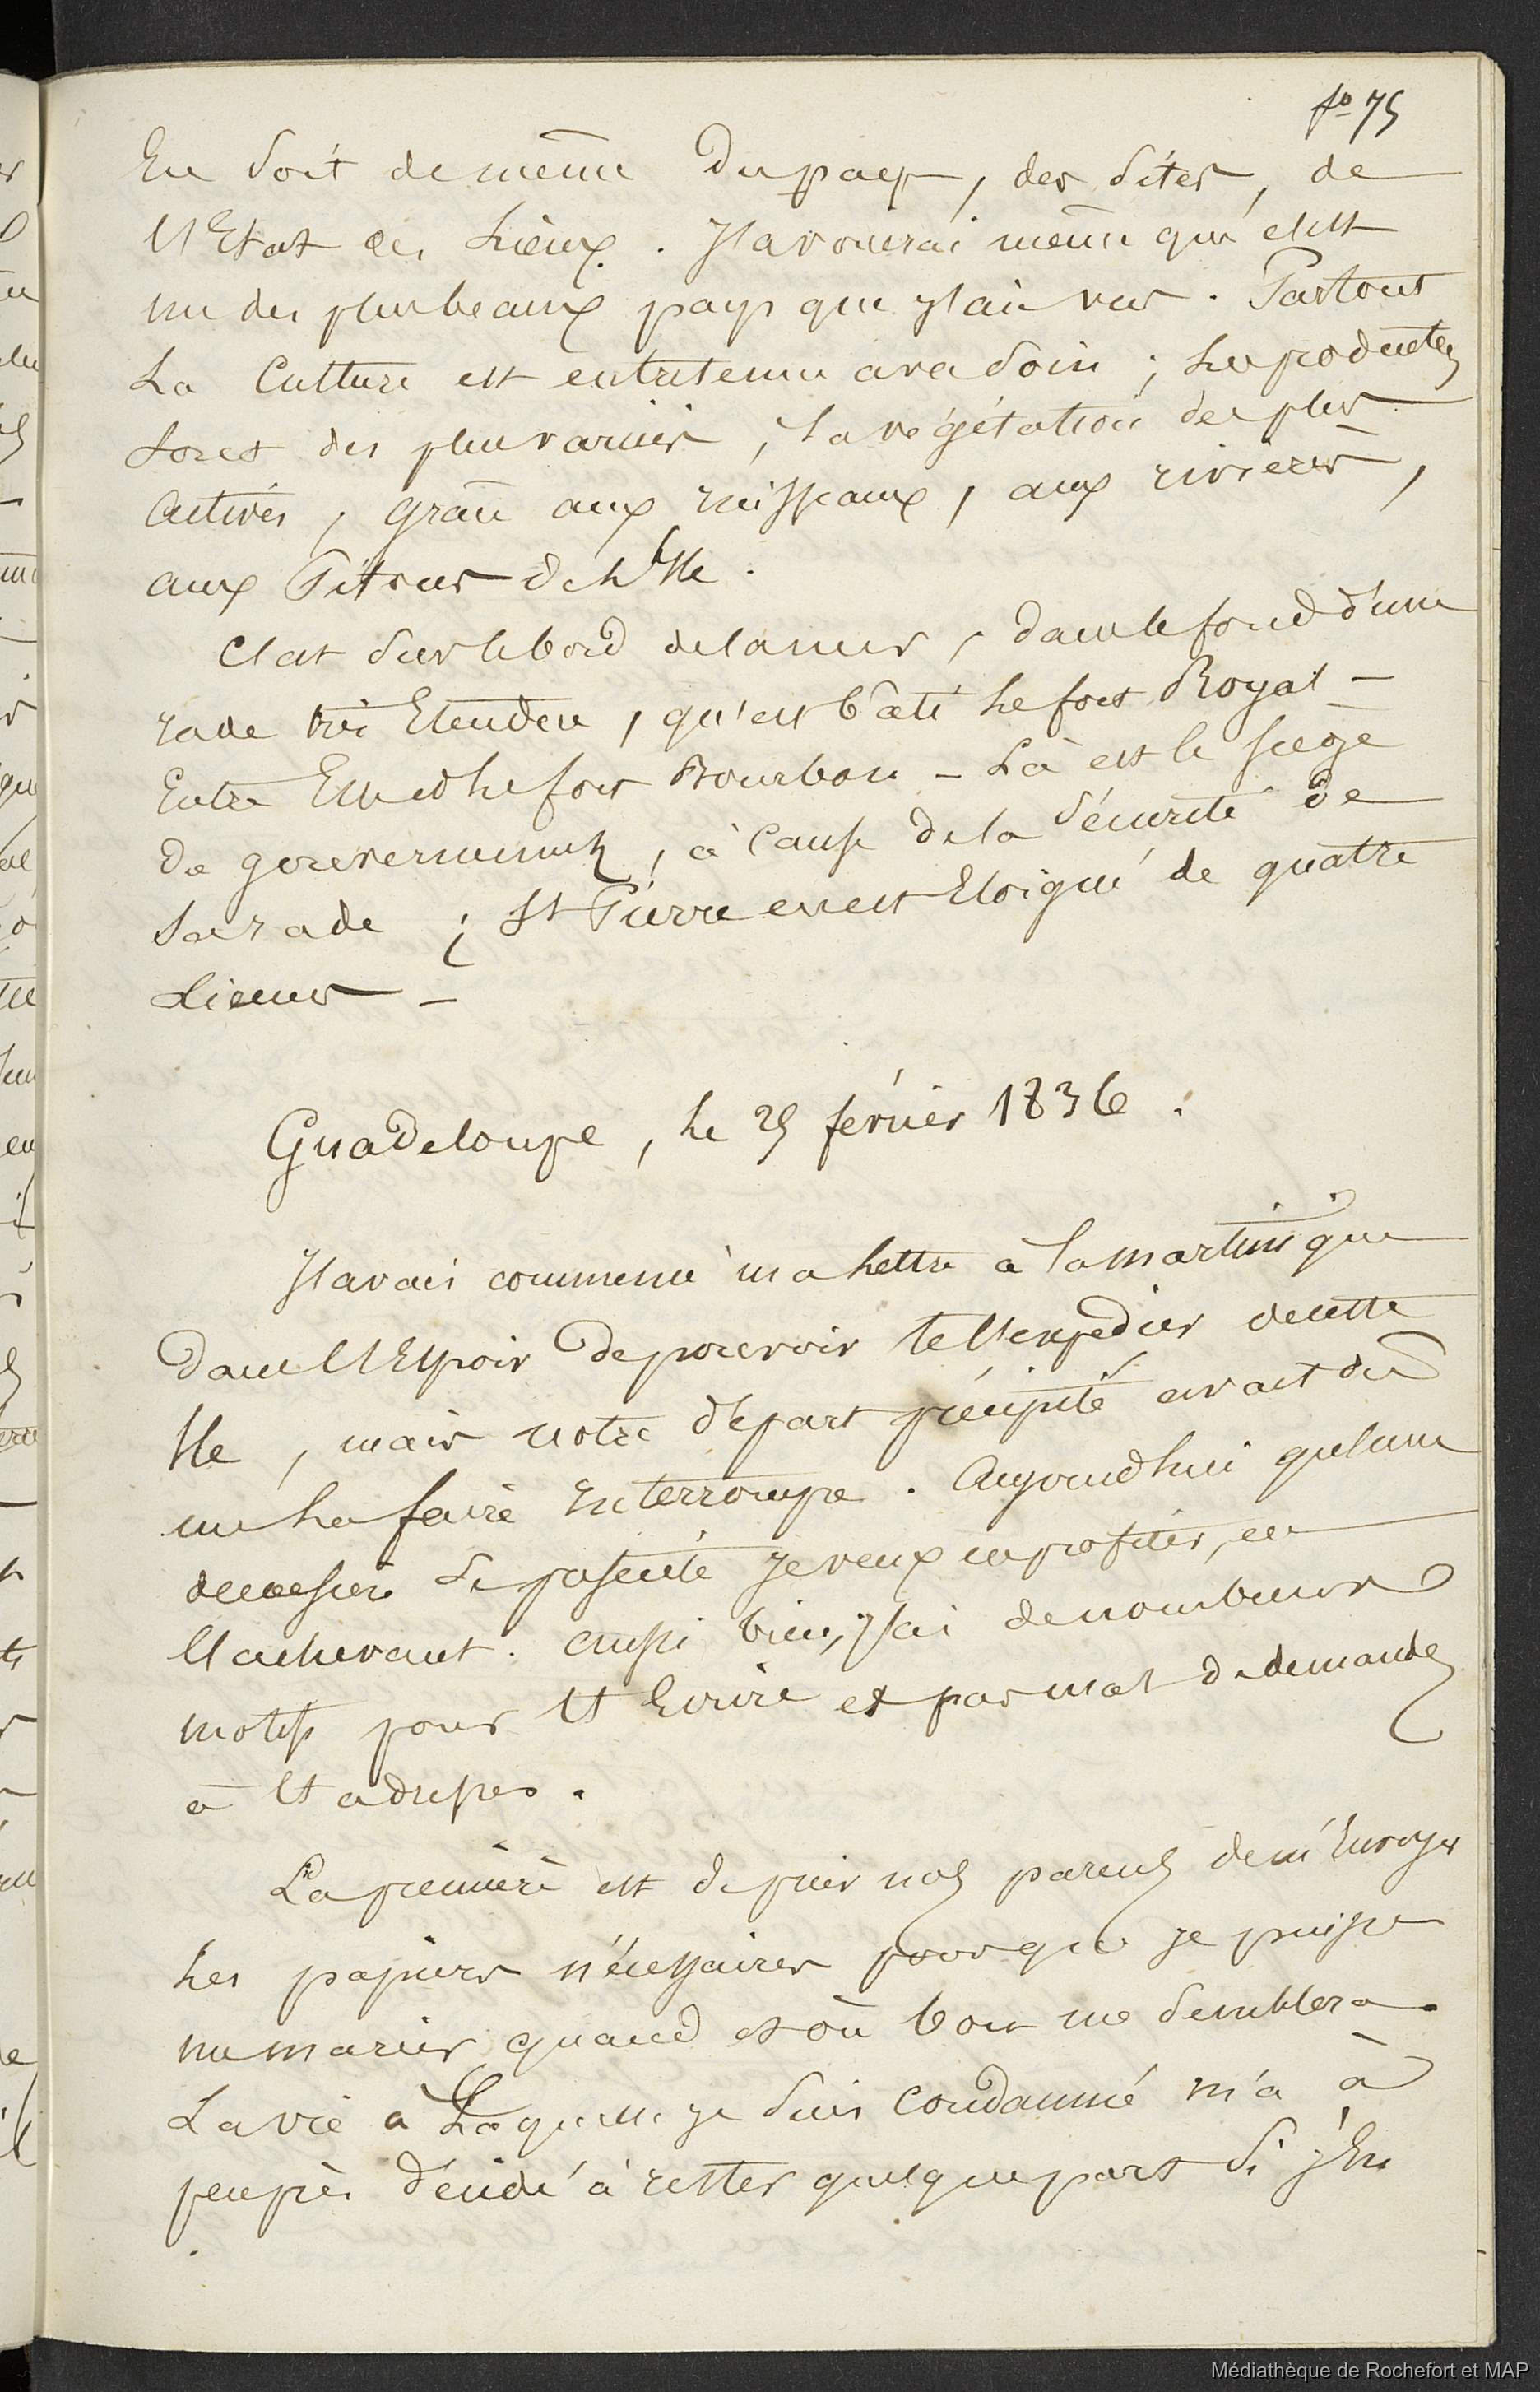 fo 75
En soit de même du pays, des sites, de
l'Etat des Lieux. J'avouerai même que c'est
un des plus beaux pays que j'aie vus. Partout
La Culture est entretenue avec soin ; Les productions
sont des plus variées, la végétation des plus
actives, grâce aux ruisseaux, aux rivières,
aux Pitons de L'Ile.
C'est sur le bord de la mer, dans le fond d'une
rade très Etendue, qu'est bâti Le fort Royal -
Entre Eux et Le fort Bourbon - Là est le siege
de gouvernement, à cause de la sécurité de
sa rade ; St Pierre en est Eloigné de quatre
Lieues -
Guadeloupe, Le 25 février 1836.
J'avais commencé ma Lettre à la martinique
dans l'Espoir de pouvoir te l'expédier de cette
Ile, mais notre départ précipité avait dû
me La faire interrompre. Aujourd'hui qu'une
occasion se présente je veux en profiter, en
l'achevant. Aussi bien, j'ai de nombreux
motifs pour t'Ecrire et pas mal de demandes
à t'adresser.
La première est de prier nos parents de m'Envoyer
Les papiers nécessaires pour que je puisse
me marier quand et où bon me semblera.
La vie à Laquelle je suis condamné m'a à
peu près décidé à rester quelque part si j'En
Médiathèque de Rochefort et MAP